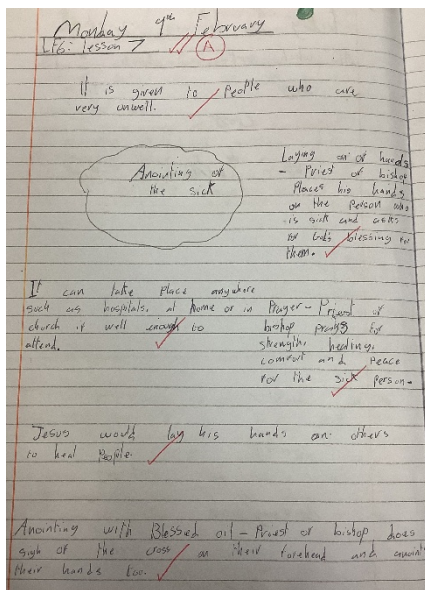 Monday 9th February
LF6: Lesson 7
A
It is given to People who are
very unwell.
Anointing of
the sick
Laying on of hands
- Priest or bishop
Places his hands
on the Person who
is sick and asks
for God's blessing for
them.
It can take Place anywhere
such as hospitals, at home or in
church if well enough to
attend.
Prayer - Priest or
bishop prays for
strength, healing,
comfort and Peace
for the sick person.
Jesus would lay his hands on others
to heal People.
Anointing with Blessed oil - Priest or bishop does
sign of the cross on their forehead and anoints
their hands too.